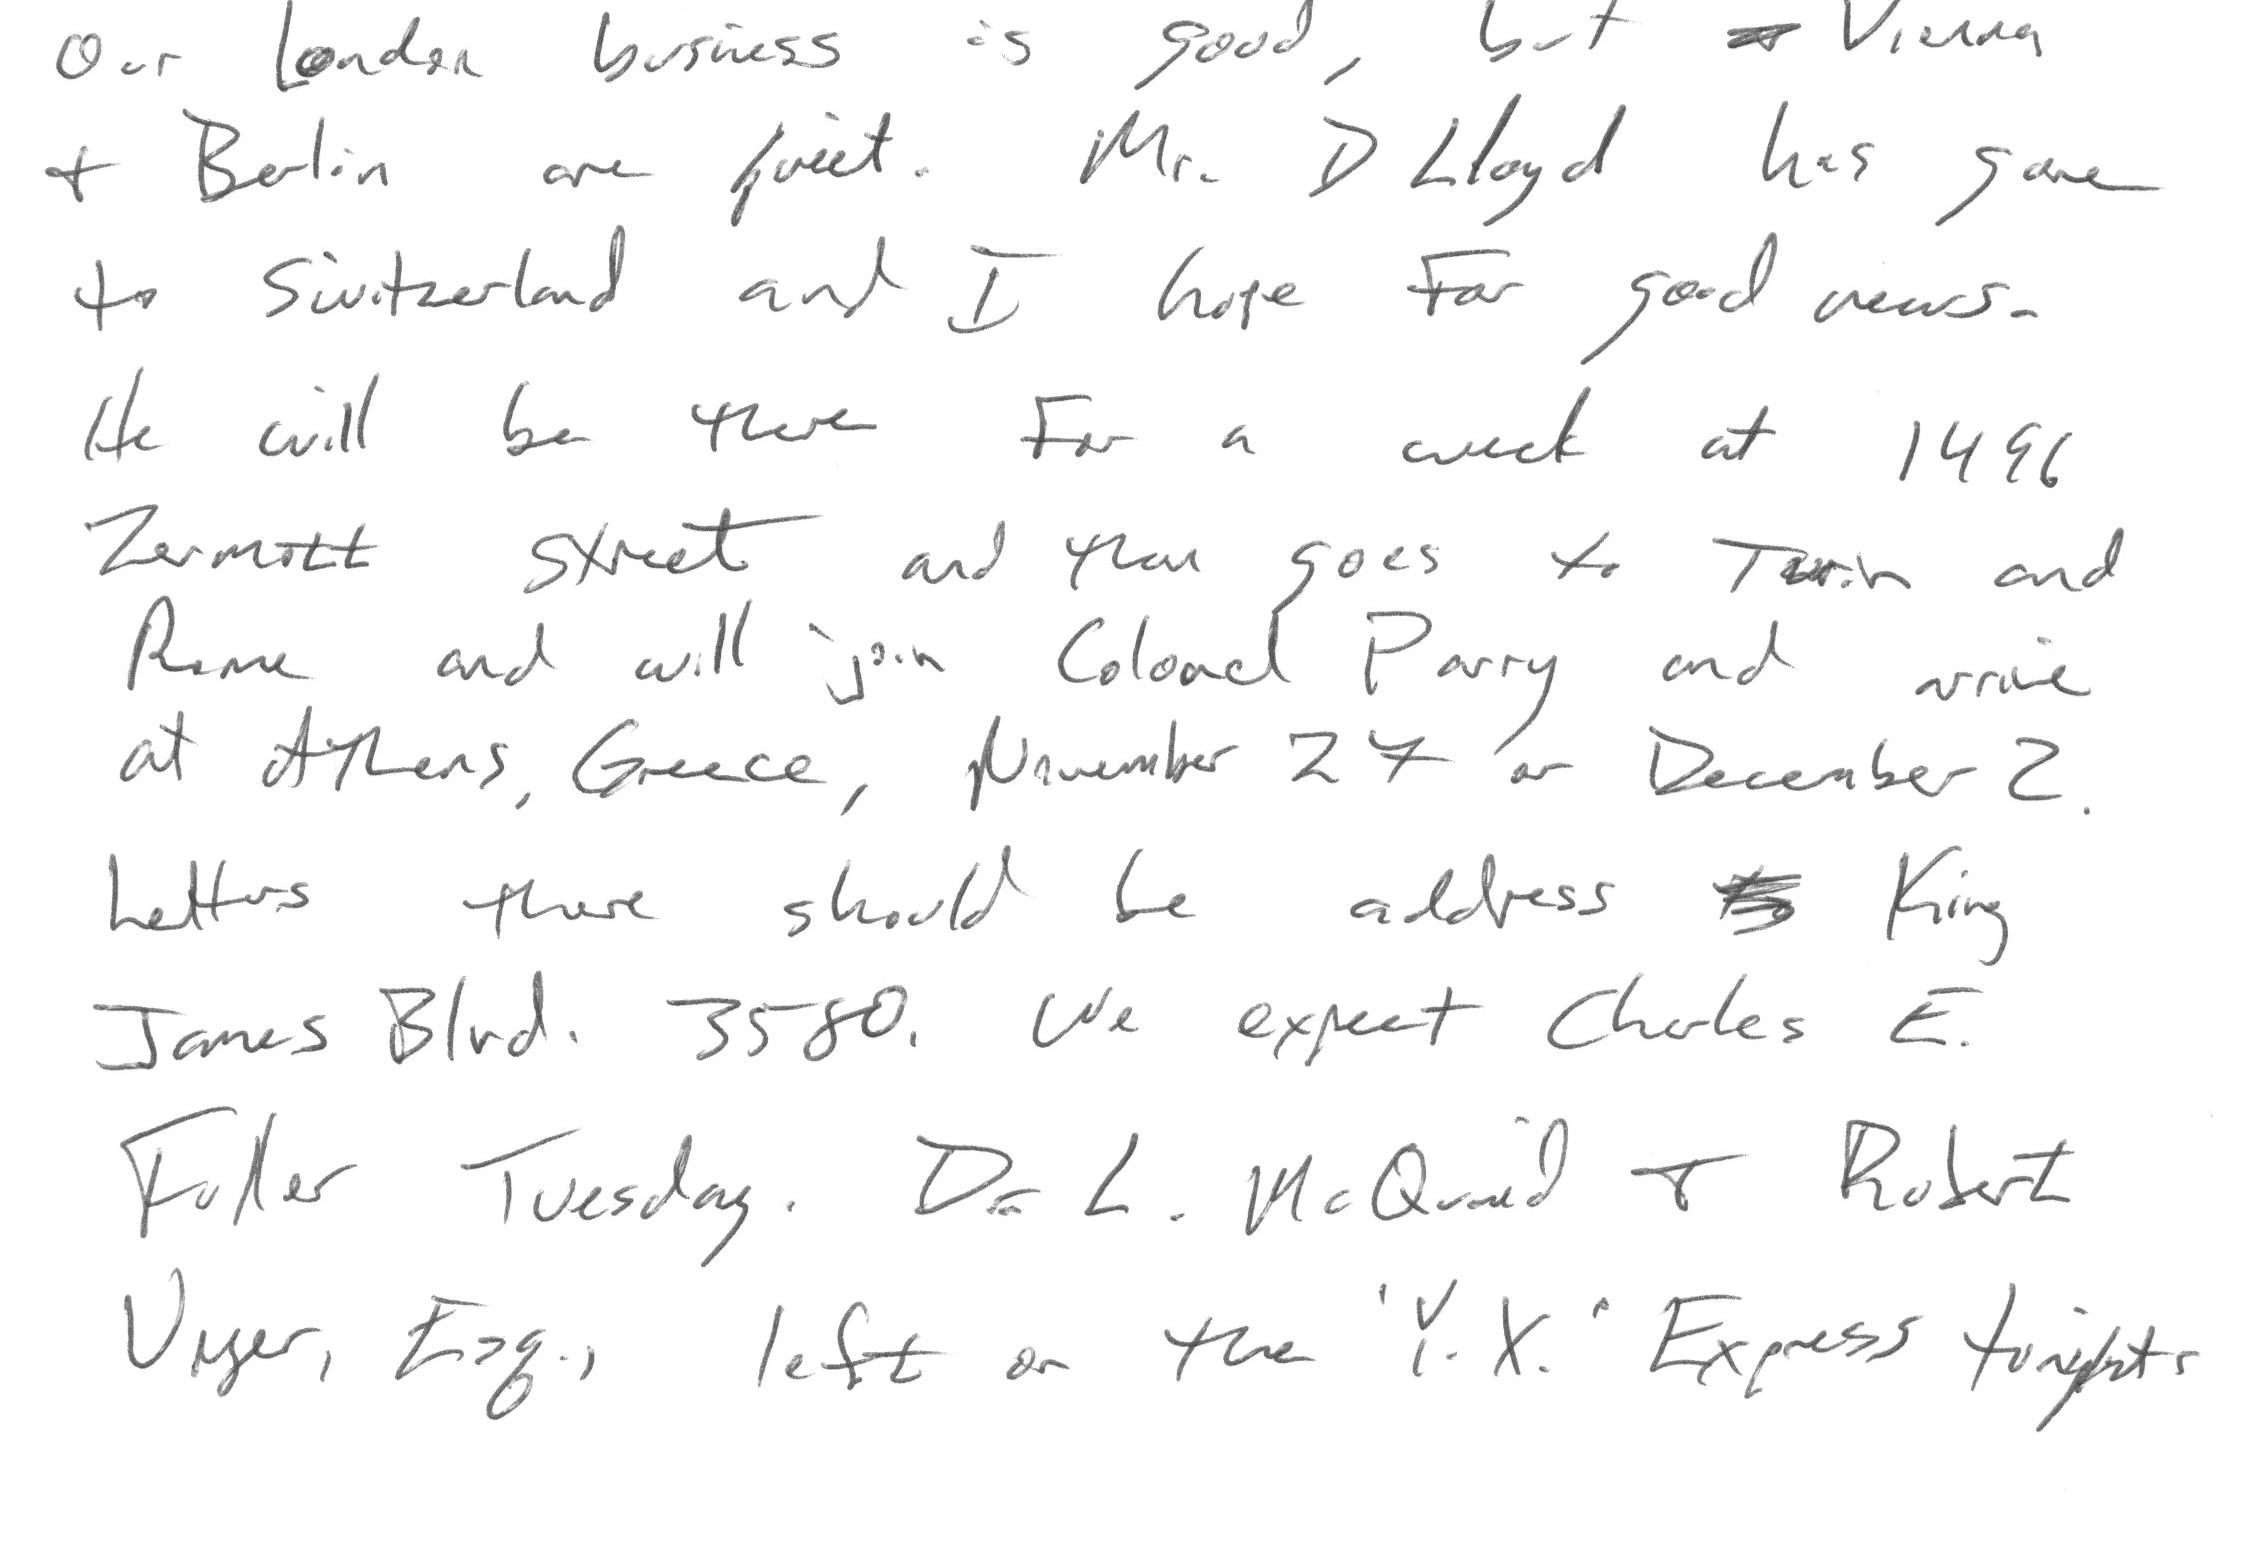 Our London business is good, but Vienna
+ Berlin are quiet. Mr. D Lloyd has gone
to Switzerland and I hope for good news.
He will be there for a week at 1496
Zermott Street and then goes to Turin and
Rome and will join Colonel Parry and arrive
at Athens, Greece, November 27 or December 2.
Letters there should be address King
James Blvd. 3580. We expect Charles E.
Fuller Tuesday. Dr. L. McQuaid + Robert
Unger, Esq., left on the "Y.X." Express tonight.